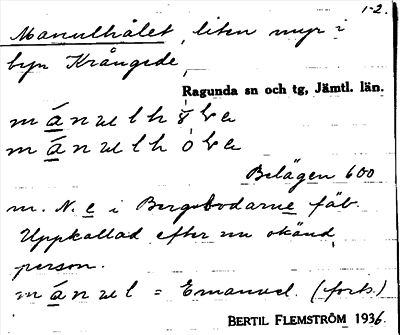 1-2.
Manulhålet, liten myr i
byn Krångede,
Ragunda sn och tg, Jämtl. län.
Belägen 600
m. N. e i Bergsbodarne fäb.
Uppkallad efter nu okänd
person.
mánuel = Emanuel. (fork.)
BERTIL FLEMSTRÖM 1936.